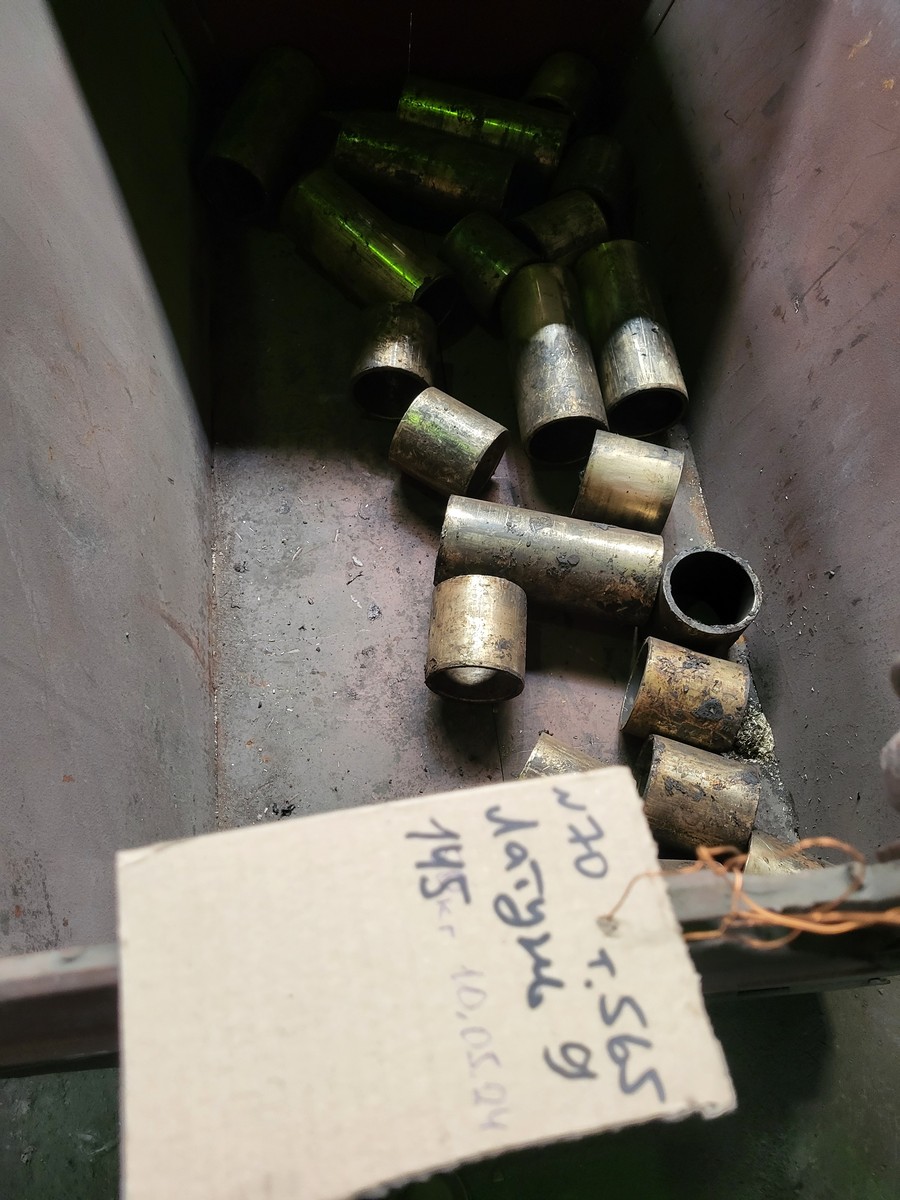 №70 т.565
Латунь д
145кг 10.05.24